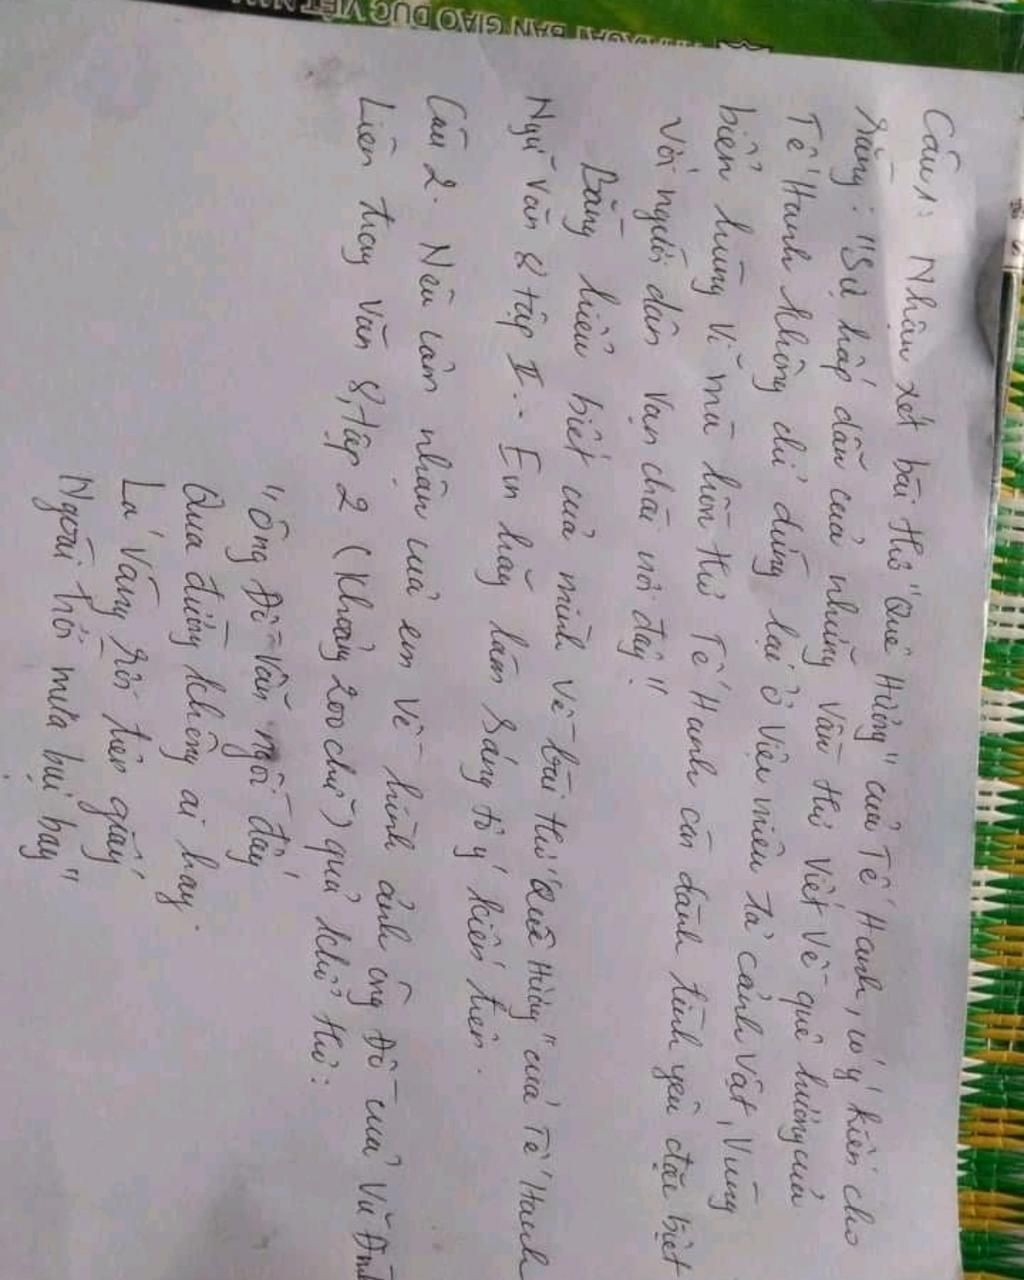 BẢN GIÁO DỤC VIỆT NAM
Câu 1: Nhận xét bài thơ "Quê Hương" của Tế Hanh, có ý kiến cho
rằng: "Sự hấp dẫn của những vần thơ viết về quê hương của
Tế Hanh không chỉ dừng lại ở việc miêu tả cảnh vật, vùng
biển hùng vĩ mà hồn thơ Tế Hanh còn dành tình yêu đặc biệt
với người dân vạn chài nơi đây"
Bằng hiểu biết của mình về bài thơ "Quê Hương" của Tế Hanh
Ngữ Văn 8 tập II. Em hãy làm sáng tỏ ý kiến trên.
Câu 2. Nêu cảm nhận của em về hình ảnh ông Đồ của Vũ Đình
Liên trong Văn 8, tập 2 (Khoảng 200 chữ) qua khổ thơ:
"Ông Đồ vẫn ngồi đấy
Qua đường không ai hay.
Lá vàng rơi trên giấy
Ngoài trời mưa bụi bay"